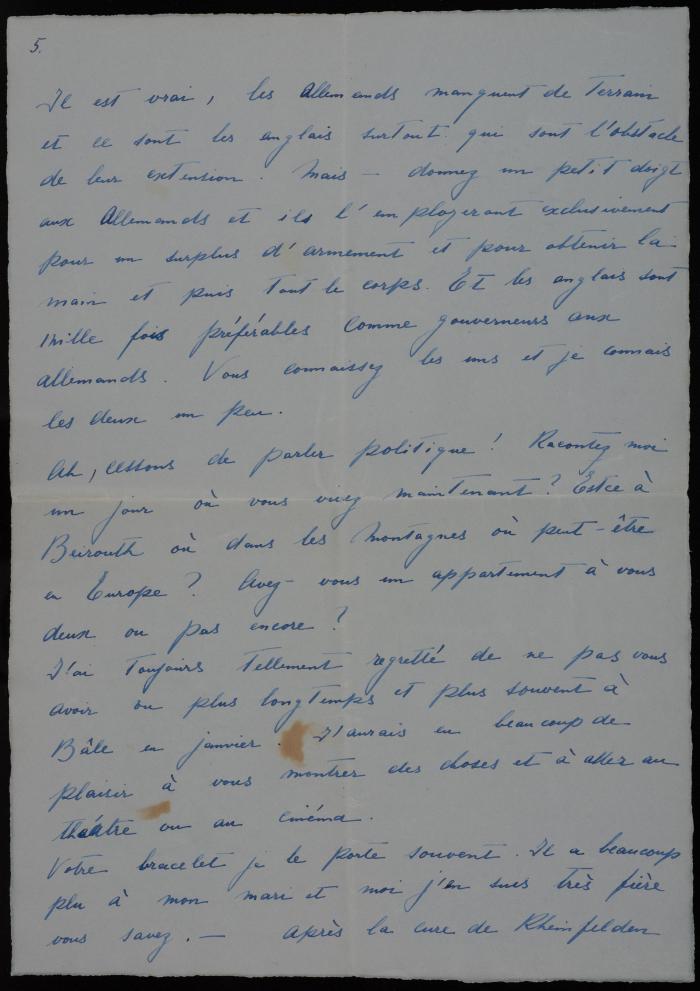 5.
Il est vrai, les Allemands manquent de terrain
et ce sont les anglais surtout qui sont l'obstacle
de leur extension. Mais — donnez un petit doigt
aux Allemands et ils l'employeront exclusivement
pour un surplus d'armement et pour obtenir la
main et puis tout le corps. Et les anglais sont
mille fois préférables comme gouverneurs aux
allemands. Vous connaissez les uns et je connais
les deux un peu.
Ah, cessons de parler politique! Racontez moi
un jour où vous vivez maintenant? Estce à
Beirouth où dans les montagnes où peut-être
en Europe? Avez-vous un appartement à vous
deux ou pas encore?
J'ai toujours tellement regretté de ne pas vous
avoir vu plus longtemps et plus souvent à
Bâle en janvier. J'aurais eu beaucoup de
plaisir à vous montrer des choses et à aller au
théâtre ou au cinéma.
Votre bracelet je le porte souvent. Il a beaucoup
plu à mon mari et moi j'en suis très fière
vous savez. — Après la cure de Rheinfelden